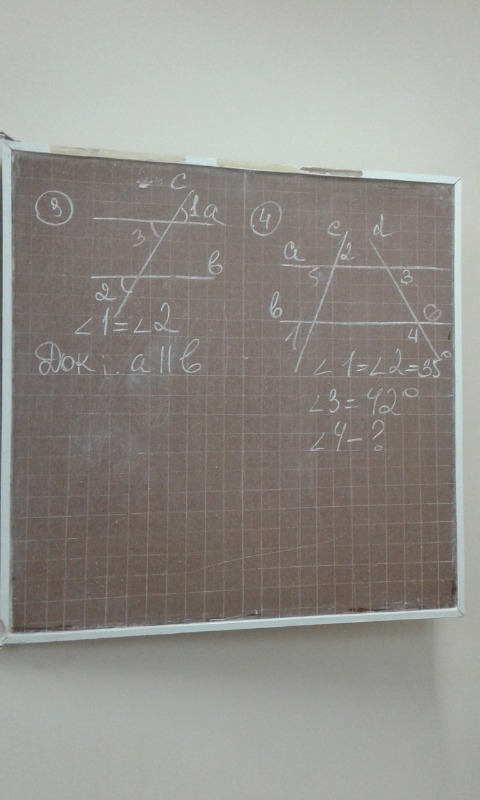 3
c
1 a
3
b
2
∠1=∠2
Док.: a || b
4
c d
a 2
5 3
b 6
1 4
∠1=∠2=35°
∠3=42°
∠4-?